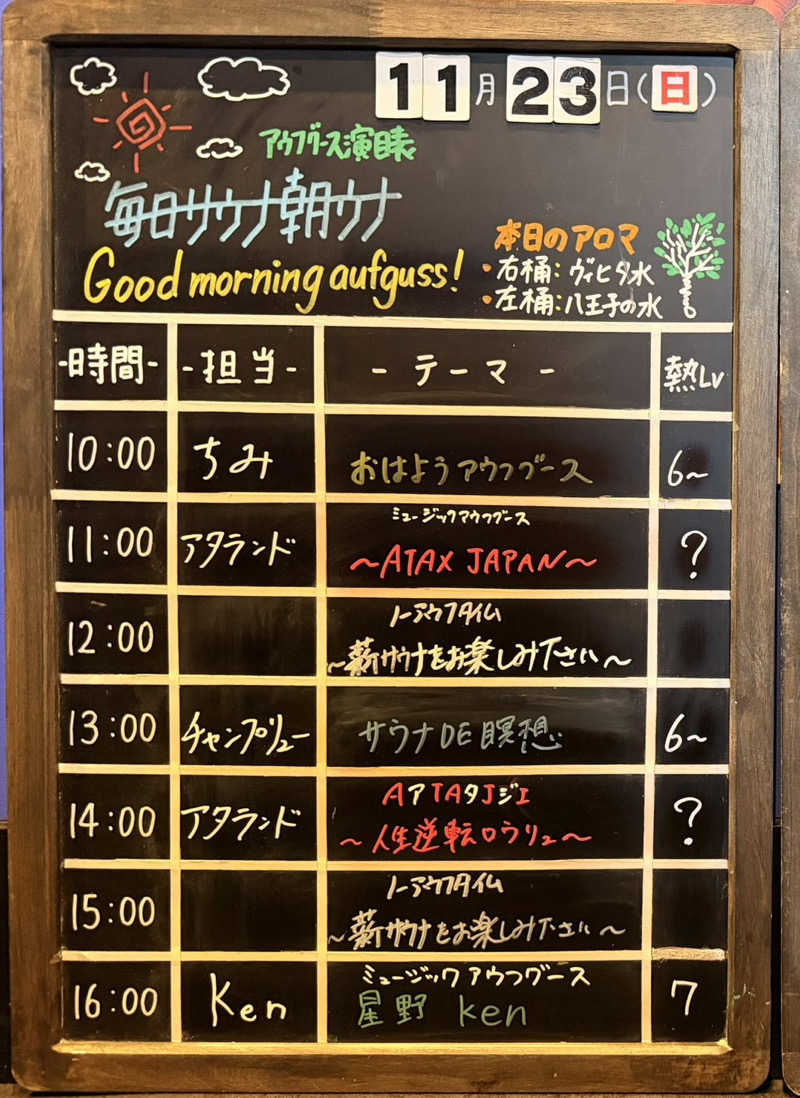 11月23日(日)
アウフグース演目表
毎日サウナ朝ウナ
Good morning aufguss!
本日のアロマ
・右桶：ヴィヒタ水
・左桶：八王子の水
-時間- -担当- -テーマ- 熱Lv
10:00 ちみ おはようアウフグース 6~
ミュージックアウフグース
11:00 アタランド ~ATAX JAPAN~ ?
ノーアウフタイム
12:00 ~薪サウナをお楽しみ下さい~
13:00 チャンプリュー サウナDE瞑想 6~
AアTAタJジI
14:00 アタランド ~人生逆転ロウリュ~ ?
ノーアウフタイム
15:00 ~薪サウナをお楽しみ下さい~
ミュージックアウフグース
16:00 Ken 星野 ken 7